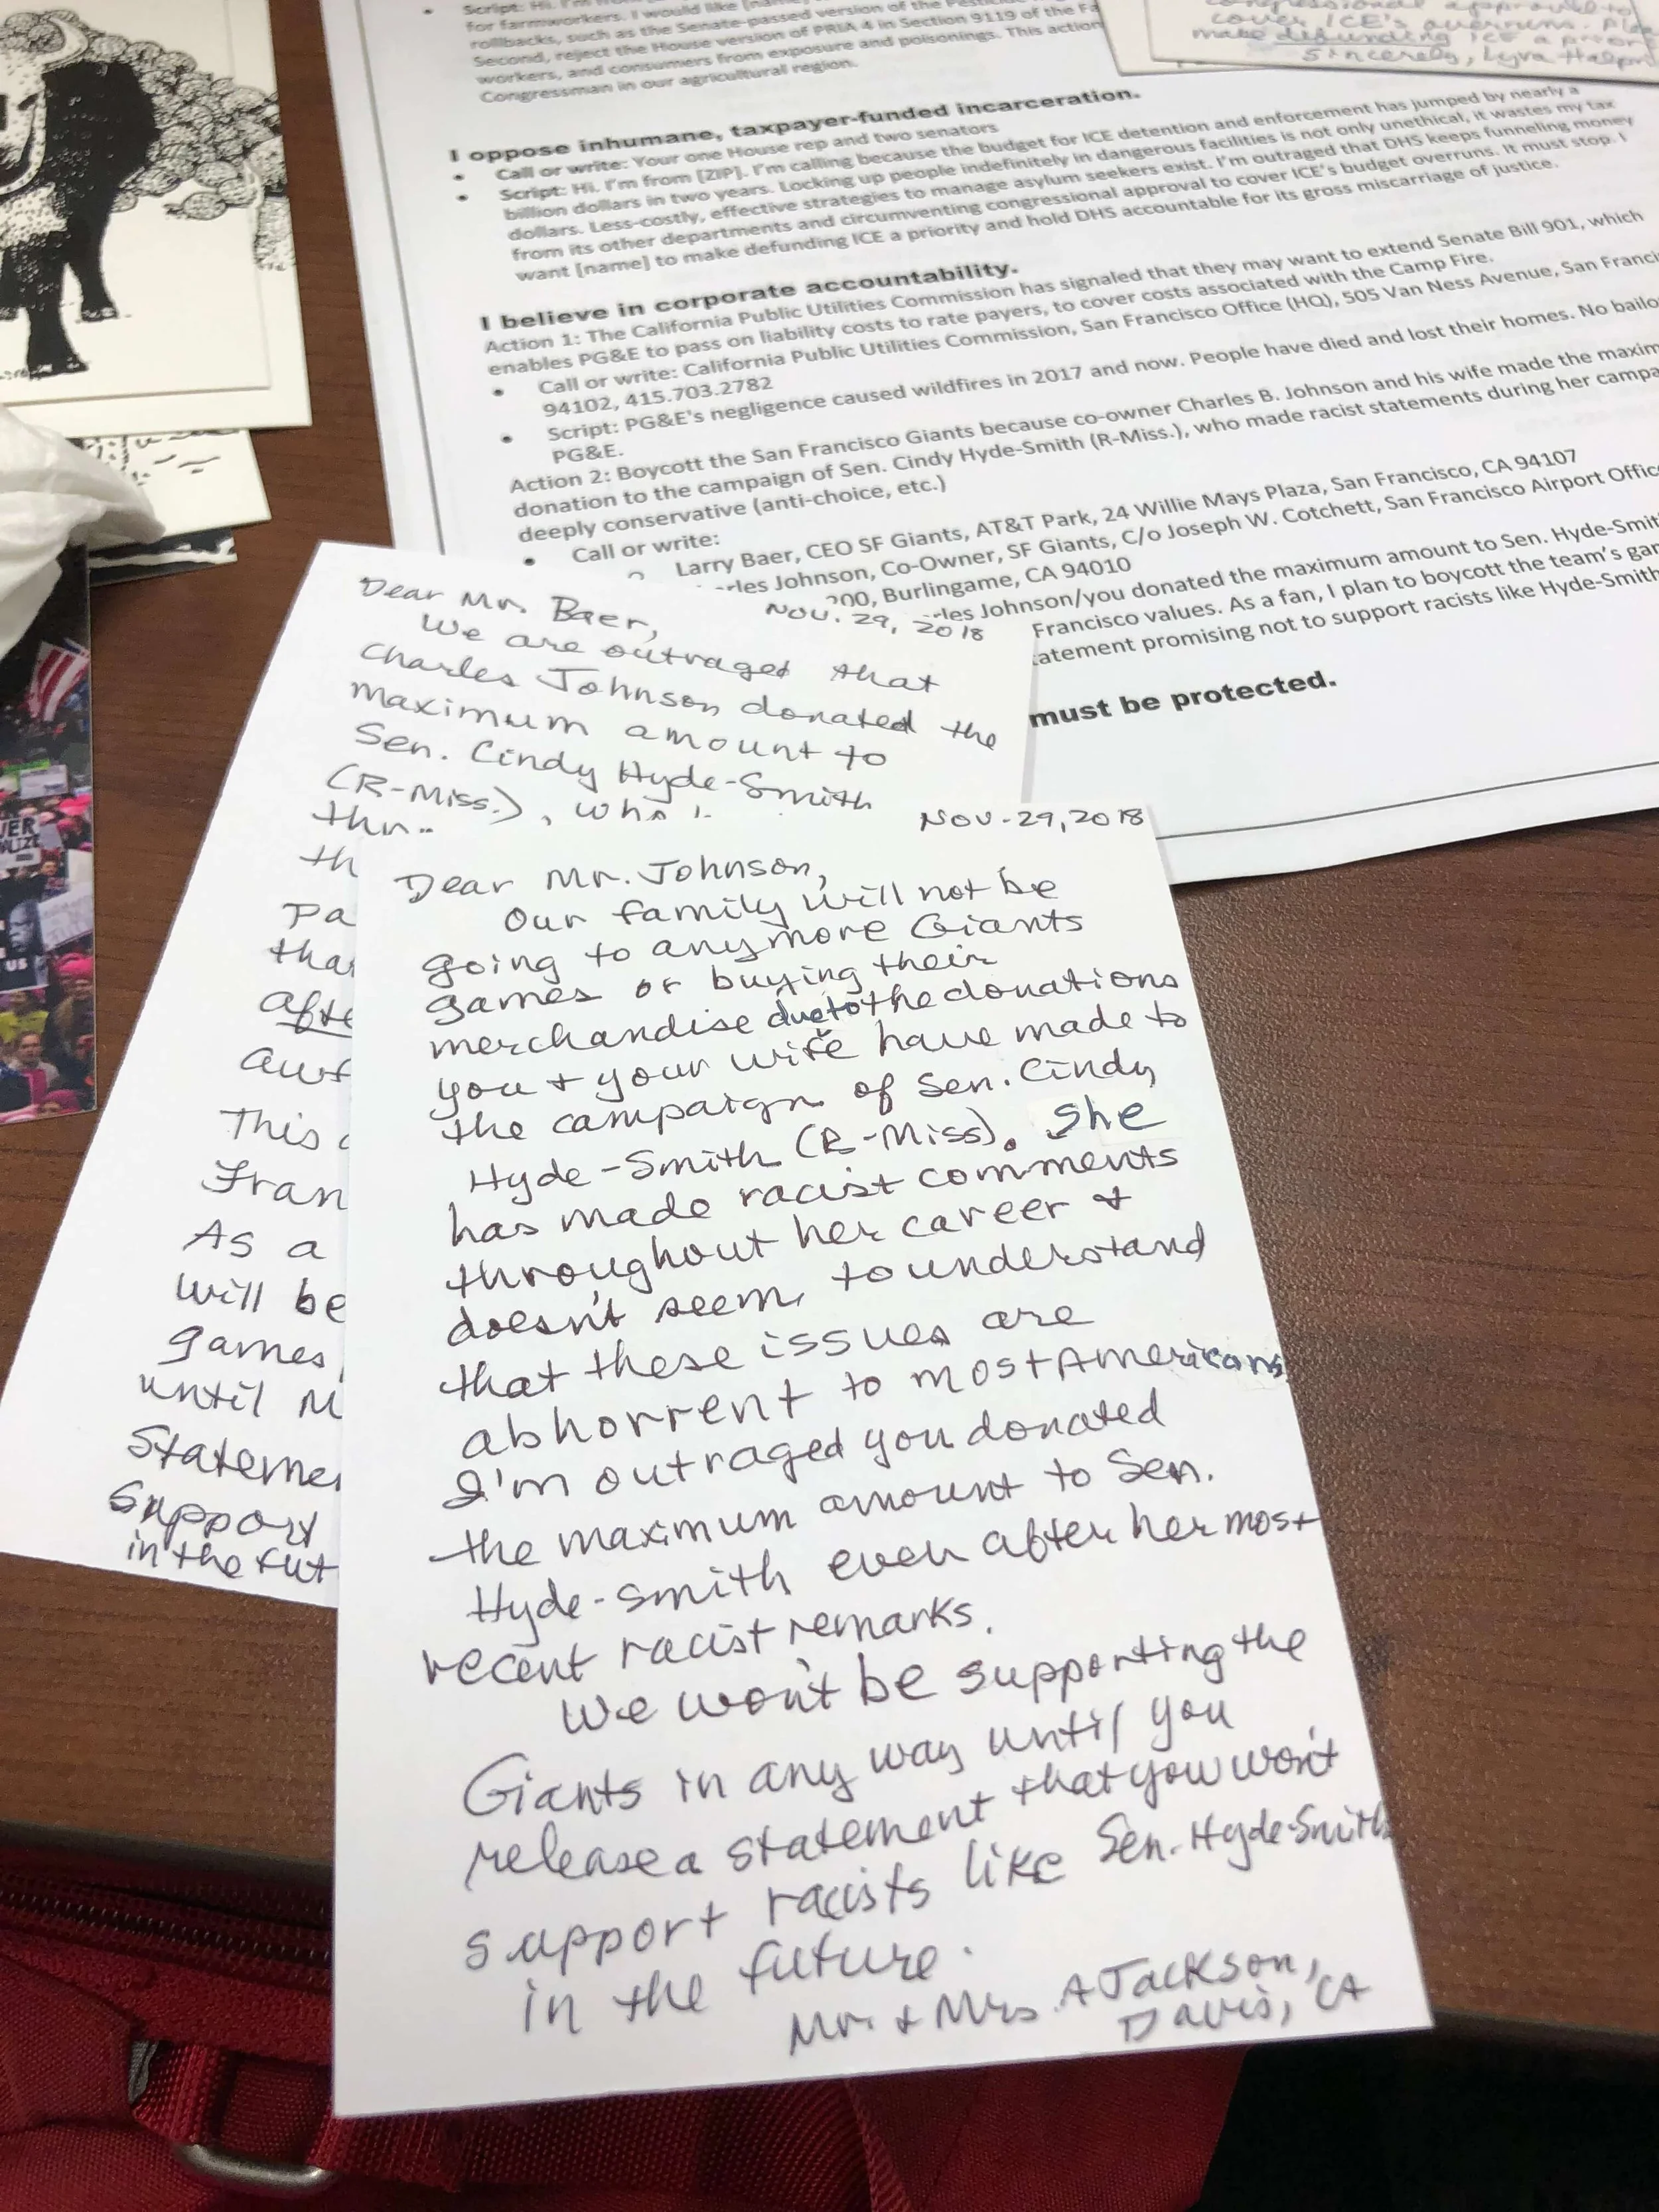 Script: Hi. I'm from
for farmworkers. I would like [name]
rollbacks, such as the Senate-passed version of the
Second, reject the House version of PRIA 4 in Section 9119 of the
workers, and consumers from exposure and poisonings. This action
Congressman in our agricultural region.
cover ICE's overruns.
make defunding ICE a
Sincerely, Lyra
I oppose inhumane, taxpayer-funded incarceration.
• Call or write: Your one House rep and two senators
• Script: Hi. I'm from [ZIP]. I'm calling because the budget for ICE detention and enforcement has jumped by nearly a
billion dollars in two years. Locking up people indefinitely in dangerous facilities is not only unethical, it wastes my tax
dollars. Less-costly, effective strategies to manage asylum seekers exist. I'm outraged that DHS keeps funneling money
from its other departments and circumventing congressional approval to cover ICE's budget overruns. It must stop. I
want [name] to make defunding ICE a priority and hold DHS accountable for its gross miscarriage of justice.
I believe in corporate accountability.
Action 1: The California Public Utilities Commission has signaled that they may want to extend Senate Bill 901, which
enables PG&E to pass on liability costs to rate payers, to cover costs associated with the Camp Fire.
• Call or write: California Public Utilities Commission, San Francisco Office (HQ), 505 Van Ness Avenue, San Franci
94102, 415.703.2782
• Script: PG&E's negligence caused wildfires in 2017 and now. People have died and lost their homes. No bailo
PG&E.
Action 2: Boycott the San Francisco Giants because co-owner Charles B. Johnson and his wife made the maxim
donation to the campaign of Sen. Cindy Hyde-Smith (R-Miss.), who made racist statements during her campa
deeply conservative (anti-choice, etc.)
• Call or write:
Larry Baer, CEO SF Giants, AT&T Park, 24 Willie Mays Plaza, San Francisco, CA 94107
rles Johnson, Co-Owner, SF Giants, C/o Joseph W. Cotchett, San Francisco Airport Offic
200, Burlingame, CA 94010
rles Johnson/you donated the maximum amount to Sen. Hyde-Smit
Francisco values. As a fan, I plan to boycott the team's gam
tatement promising not to support racists like Hyde-Smith
must be protected.
Nov. 29, 2018
Dear Mr. Baer,
We are outraged that
Charles Johnson donated the
maximum amount to
Sen. Cindy Hyde-Smith
(R-Miss.), who
th
pa
tha
afte
awf
This
Fran
As a
will be
games,
until M
Stateme
Support
in the fut
Nov. 29, 2018
Dear Mr. Johnson,
Our family will not be
going to anymore Giants
games or buying their
merchandise due to the donations
you + your wife have made to
the campaign of Sen. Cindy
Hyde-Smith (R-Miss). She
has made racist comments
throughout her career +
doesn't seem to understand
that these issues are
abhorrent to most Americans
I'm outraged you donated
the maximum amount to Sen.
Hyde-Smith even after her most
recent racist remarks.
We won't be supporting the
Giants in any way until you
release a statement that you won't
support racists like Sen. Hyde-Smith
in the future.
Mr. + Mrs. A Jackson,
Davis, CA
US